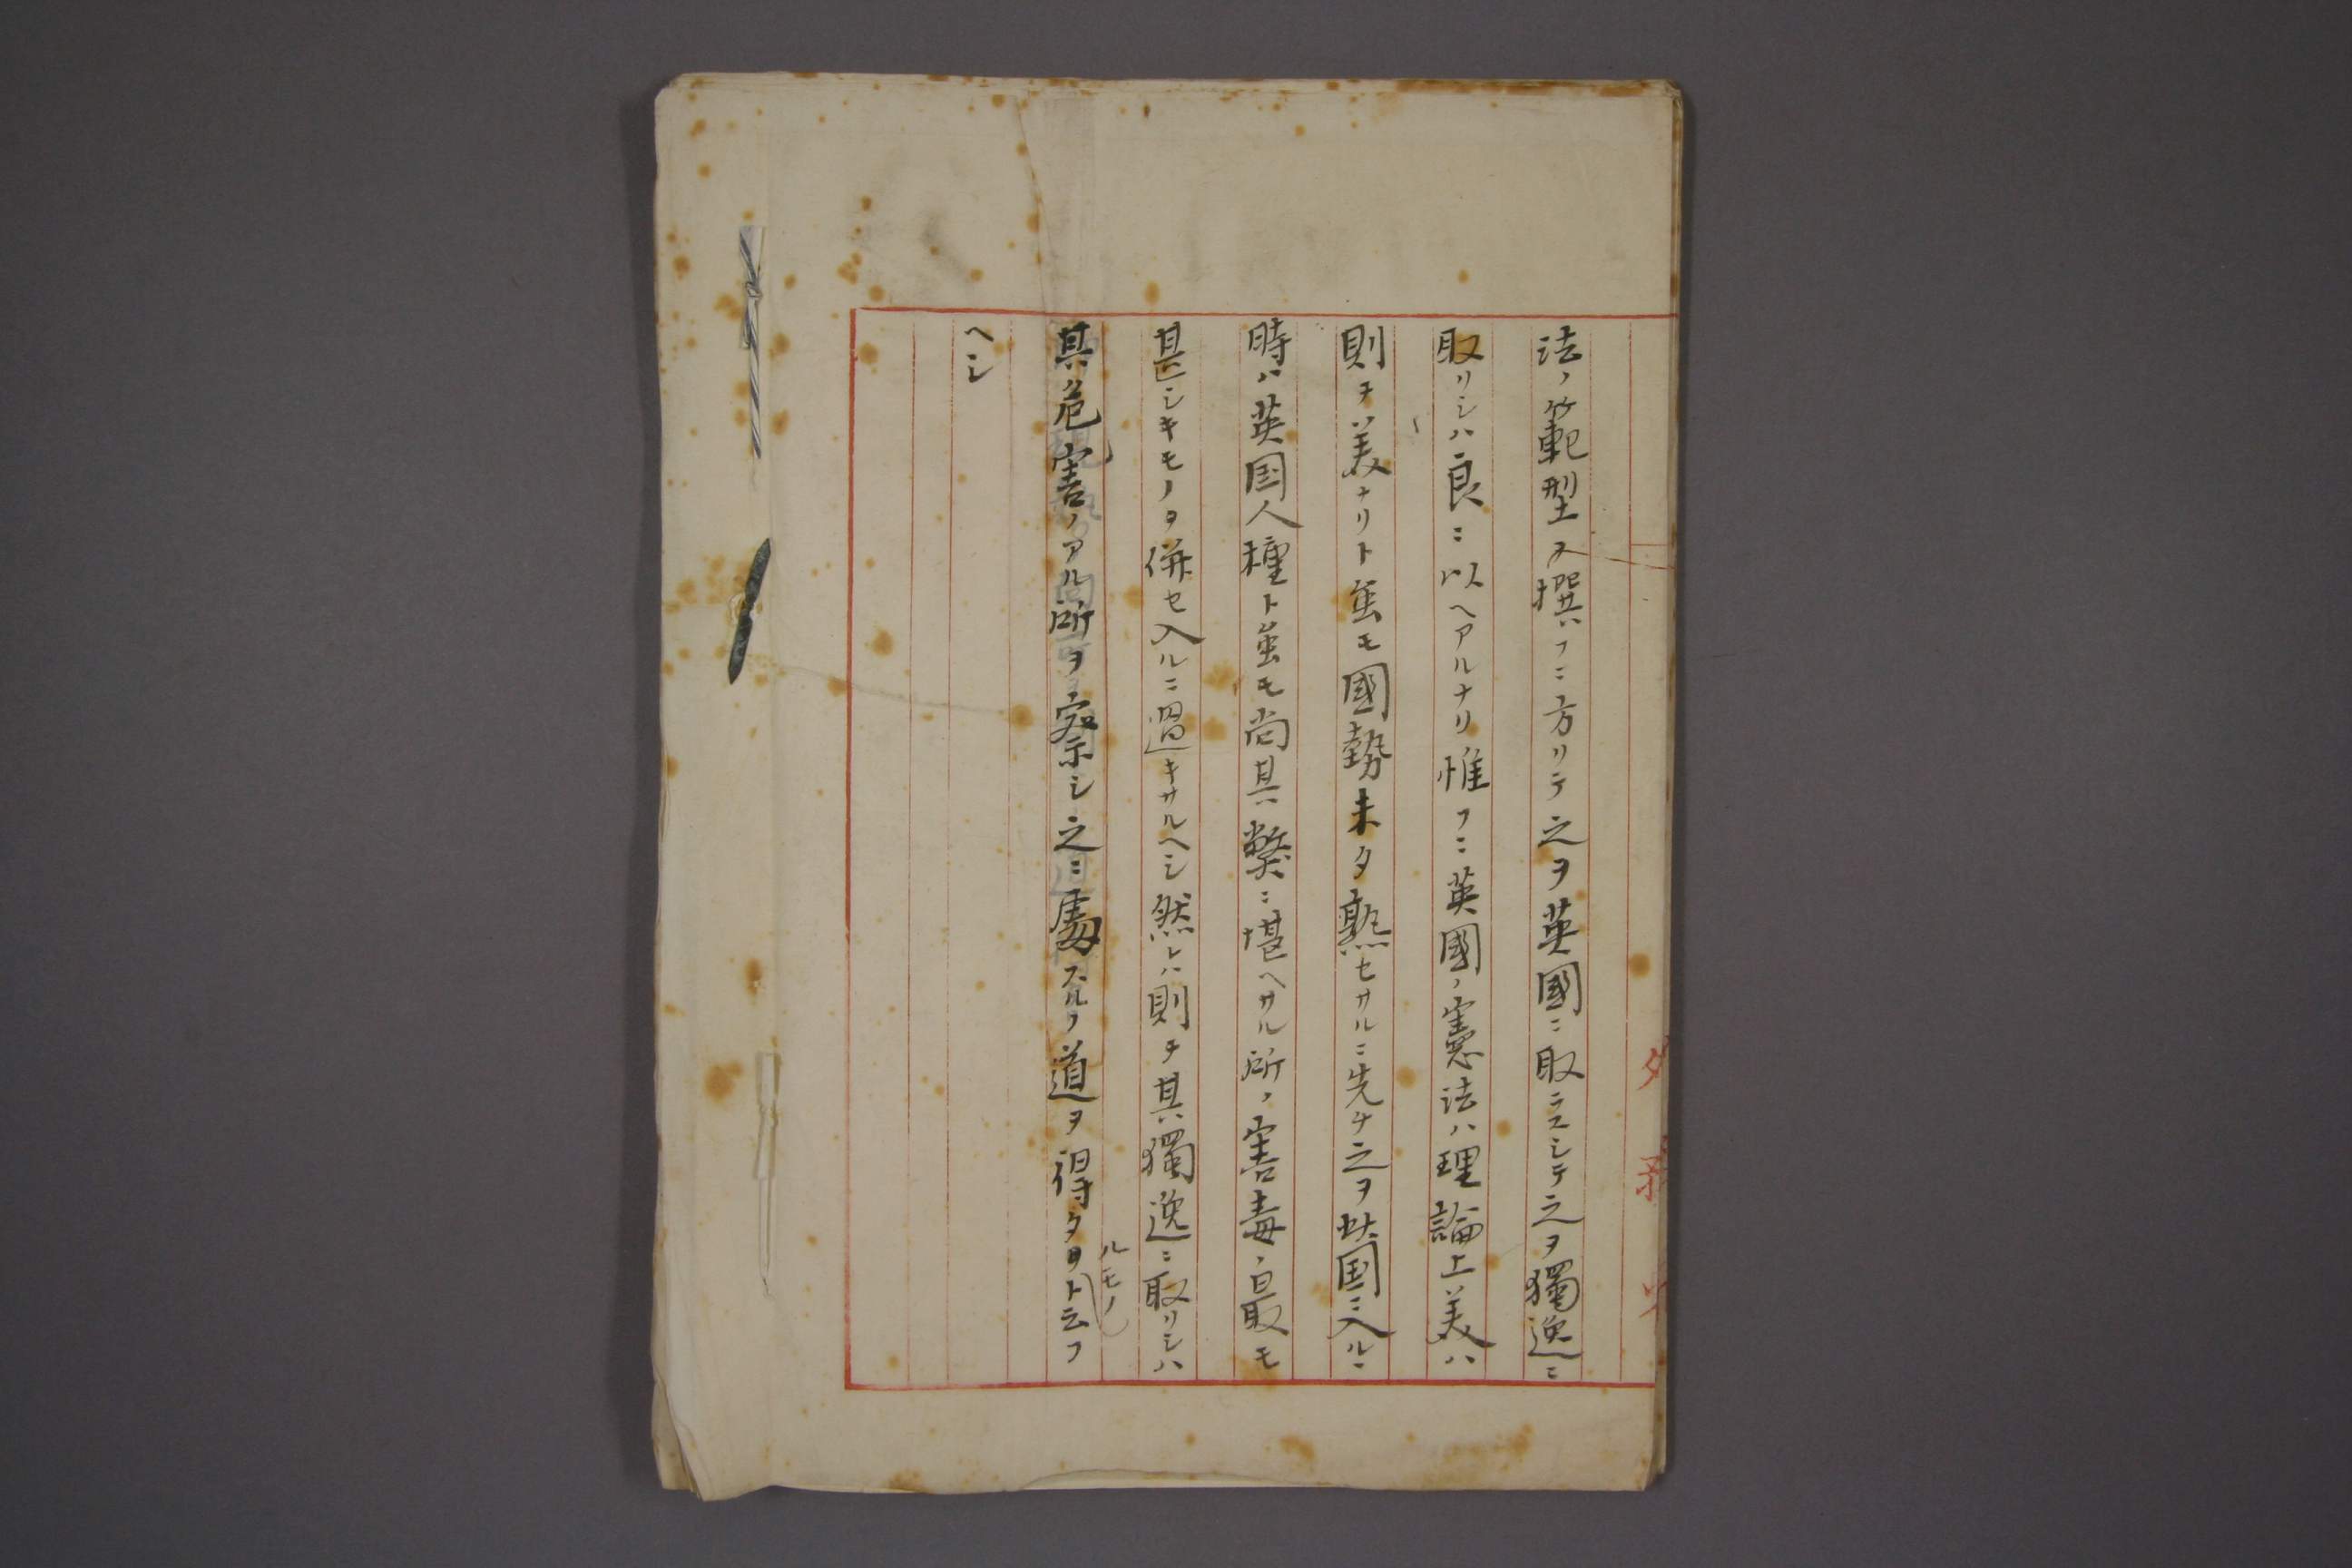 法ノ範型ヲ撰フニ方リテ之ヲ英國ニ取ラスシテ之ヲ獨逸ニ
取リシハ良ニ以ヘアルナリ惟フニ英國ノ憲法ハ理論上美ハ
則チ美ナリト虽モ國勢未タ熟セサルニ先チ之ヲ其国ニ入ルニ
時ハ英国人種ト虽モ尚其弊ニ堪ヘサル所ノ害毒ノ最モ
甚シキモノヲ併セ入ルニ過キサルヘシ然レハ則チ其獨逸ニ取リシハ
其危害ノアル所ヲ察シ之ニ處スルノ道ヲ得タ
ルモノ
ト云フ
ヘシ